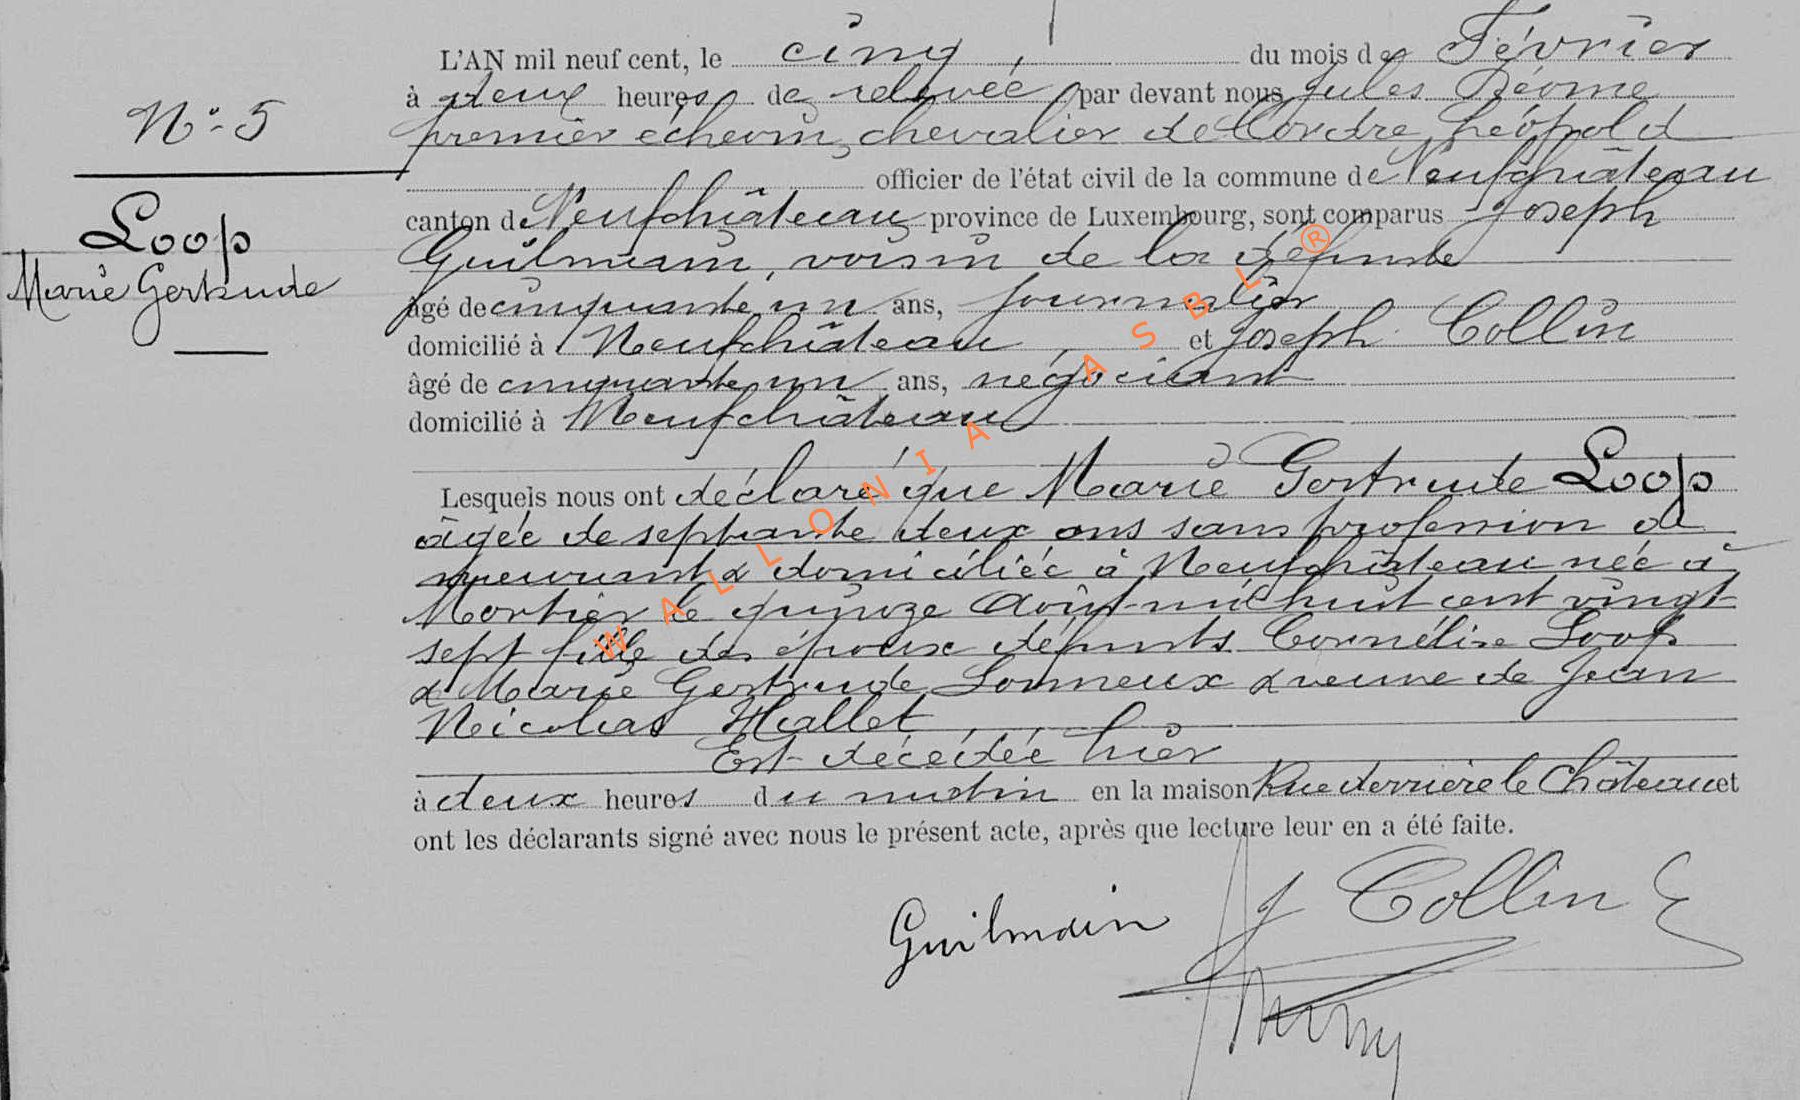 L'AN mil neuf cent, le cinq, du mois de Février
à deux heures de relevée par devant nous Jules
premier échevin, chevalier de l'ordre Léopold
officier de l'état civil de la commune de Neufchâteau
canton de Neufchâteau province de Luxembourg, sont comparus Joseph
Guilmain, voisin de la défunte
âgé de cinquante un ans, journalier
domicilié à Neufchâteau, et Joseph Collin
âgé de cinquante un ans, négociant
domicilié à Neufchâteau
Lesquels nous ont déclaré que Marie Gertrude Loop
âgée de septante deux ans sans profession de
meurant & domiciliée à Neufchâteau née à
Mortier le quinze Août mil huit cent vingt
sept fille des époux défunts Cornélis Loop
& Marie Gertrude Lonneux & veuve de Jean
Nicolas Hallet
Est décédée hier
à deux heures du matin en la maison Rue derrière le Château et
ont les déclarants signé avec nous le présent acte, après que lecture leur en a été faite.
N° 5
Loop
Marie Gertrude
Guilmain J Collin
WALLONIA ASBL ®